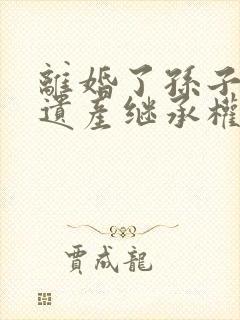 離婚了孫子
遺產继承權
賈成龍